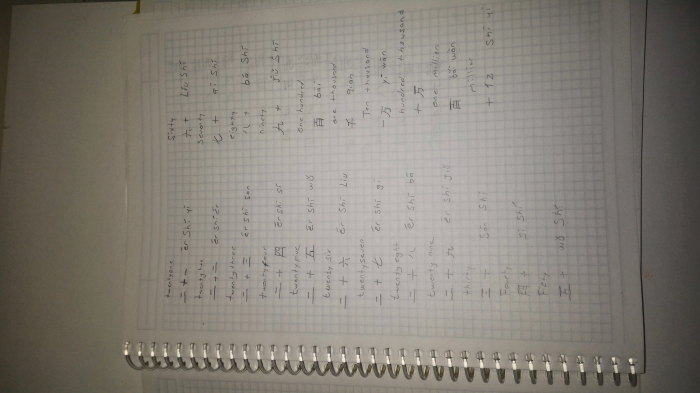 twentyone
二十一 èr shí yī
twentytwo
二十二 èr shí èr
twentythree
二十三 èr shí san
twentyfour
二十四 èr shí sì
twentyfive
二十五 èr shí wǔ
twenty six
二十六 èr shí Liù
twentyseven
二十七 èr shí qī
twentyeight
二十八 èr shí bā
twenty nine
二十九 èr shí jiǔ
thirty
三十 sān shí
Fourty
四十 sì shí
Fifty
五十 wǔ shí
Sixty
六十 Liù shí
Seventy
七十 qī shí
eighty
八十 bā shí
ninety
九十 jiǔ shí
one hundred
百 bǎi
one thousand
千 qiān
Ten thousand
一万 yī wàn
hundred thousand
十万
one million
百万 bǎi wàn
million
shí yì